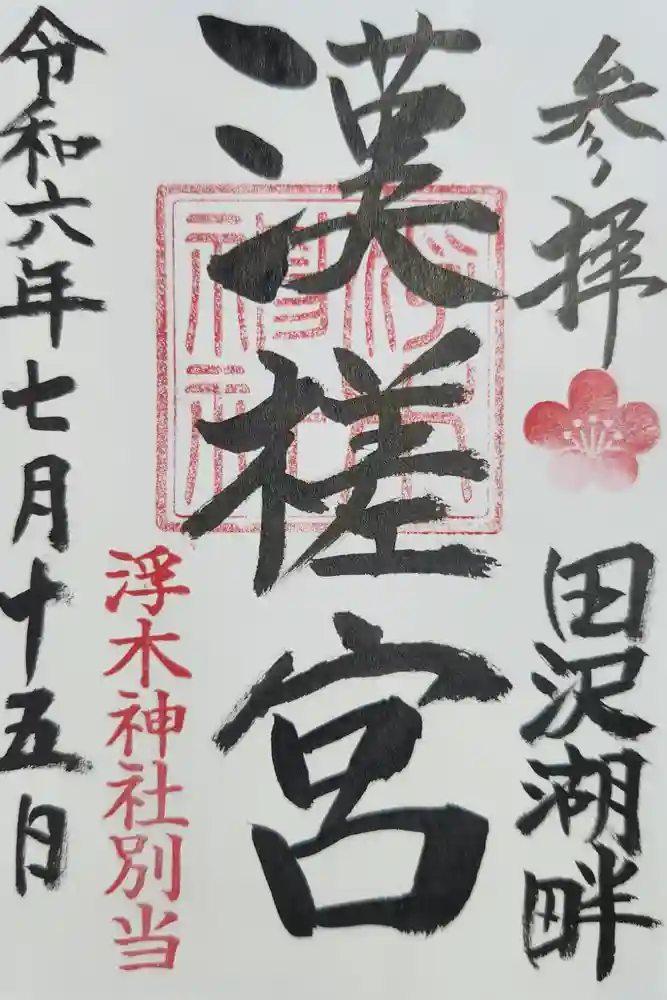 参拝
田沢湖畔
漢槎宮
浮木神社別当
令和六年七月十五日